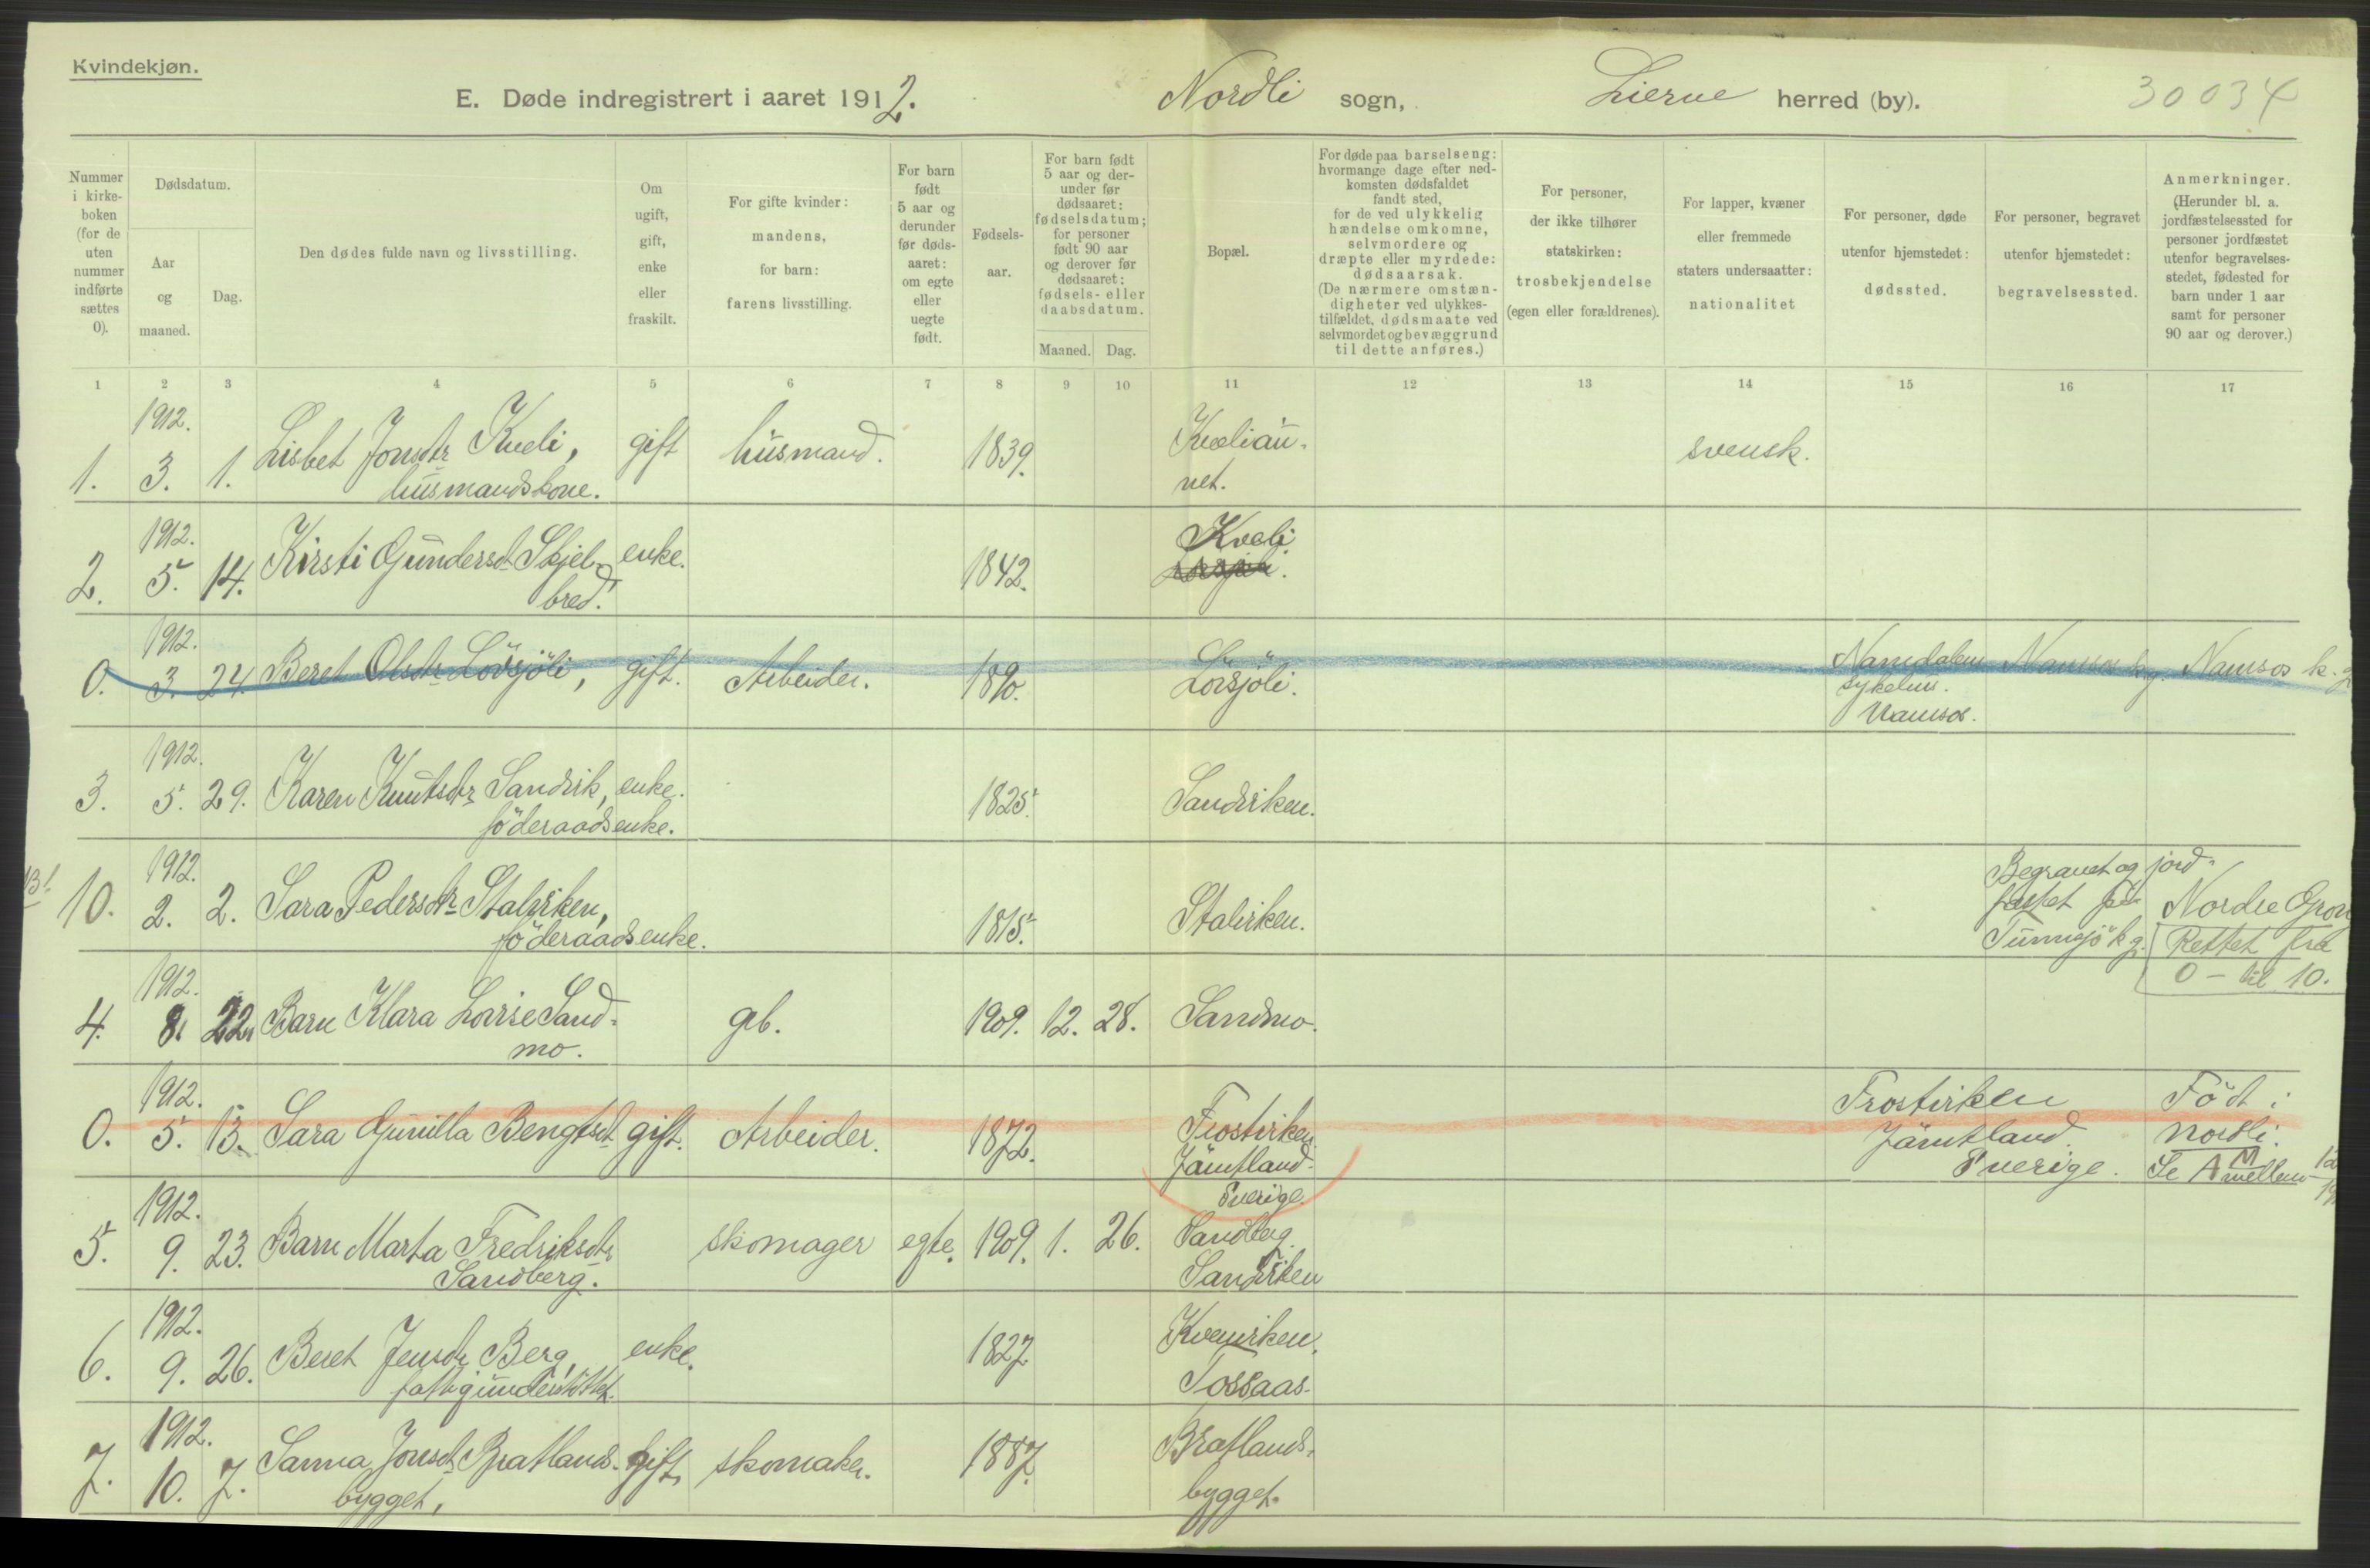 Kvindekjøn.
E. Døde indregistrert i aaret 1912. Nordli sogn, Lierne herred (by). 30034
Nummer i kirke-boken (for de uten nummer indførte sættes 0).
Dødsdatum.
Aar og maaned.
Dag.
Den dødes fulde navn og livsstilling.
Om ugift, gift, enke eller fraskilt.
For gifte kvinder: mandens, for barn: farens livsstilling.
For barn født 5 aar og derunder før døds-aaret: om egte eller uegte født.
Fødsels-aar.
For barn født 5 aar og der-under før dødsaaret: fødselsdatum; for personer født 90 aar og derover før dødsaaret: fødsels- eller daabsdatum.
Maaned. Dag.
Bopæl.
For døde paa barselseng: hvormange dage efter ned-komsten dødsfaldet fandt sted, for de ved ulykkelig hændelse omkomne, selvmordere og dræpte eller myrdede: dødsaarsak. (De nærmere omstæn-digheter ved ulykkes-tilfældet, dødsmaate ved selvmordet og bevæggrund til dette anføres.)
For personer, der ikke tilhører statskirken: trosbekjendelse (egen eller forældrenes).
For lapper, kvæner eller fremmede staters undersaatter: nationalitet
For personer, døde utenfor hjemstedet: dødssted.
For personer, begravet utenfor hjemstedet: begravelsessted.
Anmerkninger. (Herunder bl. a. jordfæstelsessted for personer jordfæstet utenfor begravelses-stedet, fødested for barn under 1 aar samt for personer 90 aar og derover.)
1 2 3 4 5 6 7 8 9 10 11 12 13 14 15 16 17
1912.
1. 3. 1. Lisbet Jonsdtr Kveli, gift husmand. 1839. Kvelian- svensk.
husmandskone. net.
1912. Kveli
2. 5. 14. Kirsti Gundersd. Skjel- enke. 1842.
bred.
1912.
0. 3. 24. Beret Olsdtr Lövsjöli, gift. Arbeider. 1890. Lövsjöli. Namdalens Namsos kg. Namsos k.g
sykehus.
Namsos.
1912.
3. 5. 29. Karen Knutsdtr Sandvik, enke. 1825. Sandviken.
föderaadsenke.
1912. Begravet og jord-
10. 2. 2. Sara Pedersdtr Stalviken, 1815. Stalviken. fæstet på Nordre Gron
föderaadsenke. Tunnsjö kg. Rettet fra
0 - til 10.
1912.
4. 8. 22. Barn Klara Lovise Sand- gb. 1909. 12. 28. Sandmo.
mo.
1912.
0. 5. 13. Sara Gunilla Bengtsdt gift. Arbeider. 1872. Frostviken Frostviken Född i
Jämtland. Jämtland. Nordli.
Sverige. Sverige. Se A M mellem
1912.
5. 9. 23. Barn Marta Fredriksdtr skomager egte. 1909. 1. 26. Sandberg.
Sandberg. Sandviken
1912.
6. 9. 26. Beret Jensdtr Berg, enke. 1827. Kvemviken,
fattigunderstöttet. Tossaas.
1912.
7. 10. 7. Sanna Jonsdt Bratlands- gift, skomaker. 1887. Bratlands-
bygget, bygget.